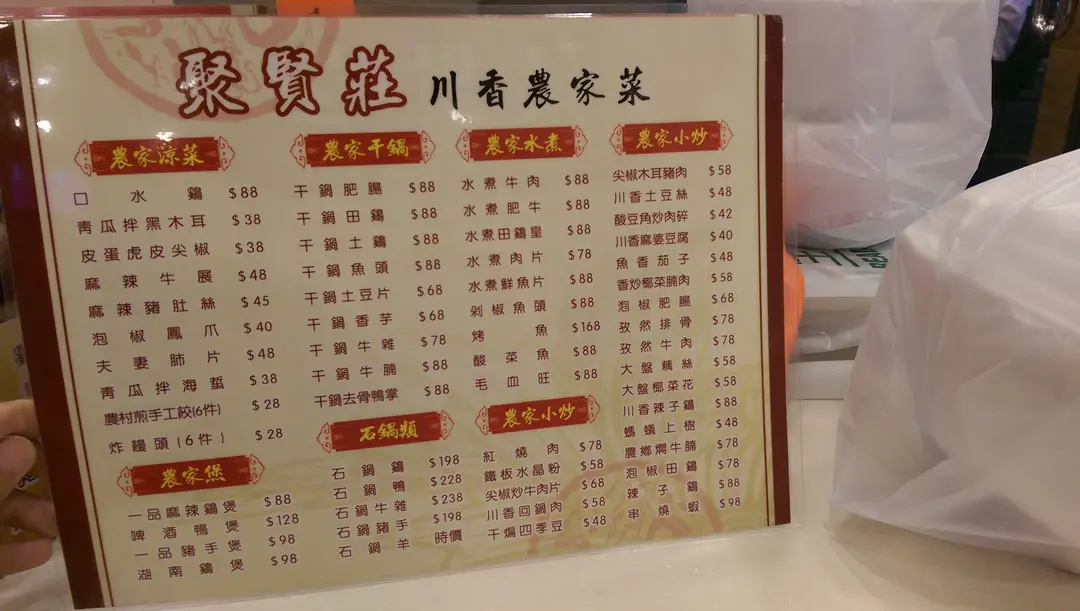 聚賢莊 川香農家菜
農家涼菜
口水鷄 $88
青瓜拌黑木耳 $38
皮蛋虎皮尖椒 $38
麻辣牛展 $48
麻辣豬肚絲 $45
泡椒鳳爪 $40
夫妻肺片 $48
青瓜拌海蜇 $38
農村煎手工餃(6件) $28
炸饅頭(6件) $28
農家煲
一品麻辣鷄煲 $88
啤酒鴨煲 $128
一品豬手煲 $98
湖南鷄煲 $98
農家干鍋
干鍋肥腸 $88
干鍋田鷄 $88
干鍋土鷄 $88
干鍋魚頭 $88
干鍋土豆片 $68
干鍋香芋 $68
干鍋牛雜 $78
干鍋牛腩 $88
干鍋去骨鴨掌 $88
石鍋類
石鍋鷄 $198
石鍋鴨 $228
石鍋牛雜 $238
石鍋豬手 $198
石鍋羊 時價
農家水煮
水煮牛肉 $88
水煮肥牛 $88
水煮田鷄皇 $88
水煮肉片 $78
水煮鮮魚片 $88
剁椒魚頭 $88
烤魚 $168
酸菜魚 $88
毛血旺 $88
農家小炒
紅燒肉 $78
鐵板水晶粉 $58
尖椒炒牛肉片 $68
川香回鍋肉 $58
干煸四季豆 $48
農家小炒
尖椒木耳豬肉 $58
川香土豆絲 $48
酸豆角炒肉碎 $42
川香麻婆豆腐 $40
魚香茄子 $48
香炒椰菜腩肉 $58
泡椒肥腸 $68
孜然排骨 $78
孜然牛肉 $78
大盤藕絲 $58
大盤椰菜花 $58
川香辣子鷄 $88
螞蟻上樹 $48
農鄉燜牛腩 $78
泡椒田鷄 $78
辣子鷄 $88
串燒蝦 $98